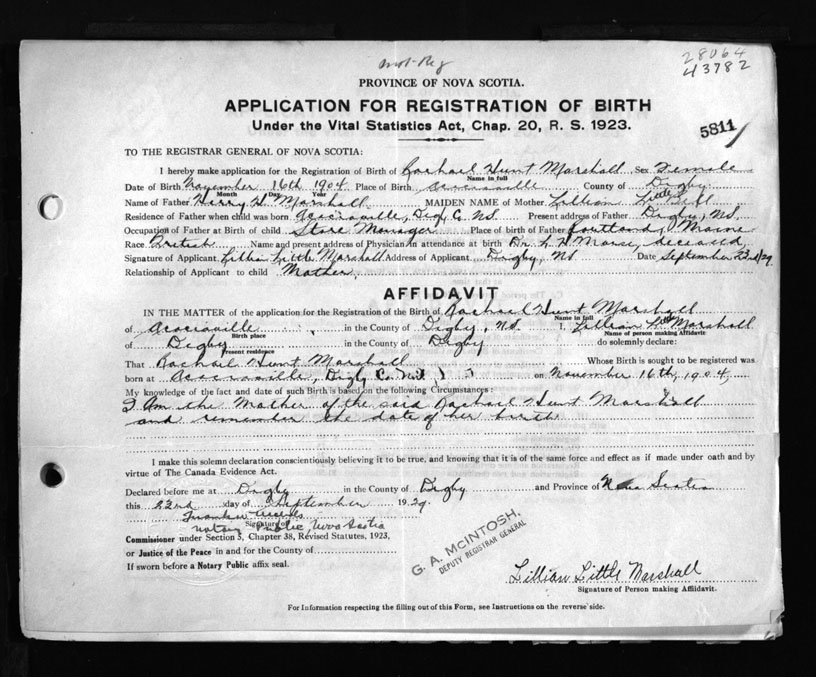 28064
43782
PROVINCE OF NOVA SCOTIA.
APPLICATION FOR REGISTRATION OF BIRTH
Under the Vital Statistics Act, Chap. 20, R. S. 1923.
5811
TO THE REGISTRAR GENERAL OF NOVA SCOTIA:
I hereby make application for the Registration of Birth of Rachael Hunt Marshall Sex Female
Name in full
Date of Birth November 16th 1904 Place of Birth Acaciaville County of Digby
Month Day Year
Name of Father Harry H. Marshall MAIDEN NAME of Mother Lillian Little
Residence of Father when child was born Acaciaville, Dig. C. NS. Present address of Father Digby, NS.
Occupation of Father at Birth of child Store Manager Place of birth of Father Portland, Maine
Race British Name and present address of Physician in attendance at birth Dr. Morse, deceased
Signature of Applicant Lillian Little Marshall Address of Applicant Digby, NS Date September 22nd/29.
Relationship of Applicant to child Mother.
AFFIDAVIT
IN THE MATTER of the application for the Registration of the Birth of Rachael Hunt Marshall
Name in full
of Acaciaville in the County of Digby, NS. I, Lillian L. Marshall
Birth place Name of person making Affidavit
of Digby in the County of Digby do solemnly declare:
Present residence
That Rachael Hunt Marshall Whose Birth is sought to be registered was
born at Acaciaville, Digby Co. on November 16th, 1904,
My knowledge of the fact and date of such Birth is based on the following Circumstances:
I Am the Mother of the said Rachael Hunt Marshall
and remember the date of her birth
I make this solemn declaration conscientiously believing it to be true, and knowing that it is of the same force and effect as if made under oath and by
virtue of The Canada Evidence Act.
Declared before me at Digby in the County of Digby and Province of Nova Scotia
this 22nd day of September 1929.
Signature of
Notary Public, Nova Scotia
Commissioner under Section 3, Chapter 38, Revised Statutes, 1923,
or Justice of the Peace in and for the County of
If sworn before a Notary Public affix seal.
G. A. McINTOSH,
DEPUTY REGISTRAR GENERAL
Lillian Little Marshall
Signature of Person making Affidavit.
For Information respecting the filling out of this Form, see Instructions on the reverse side.